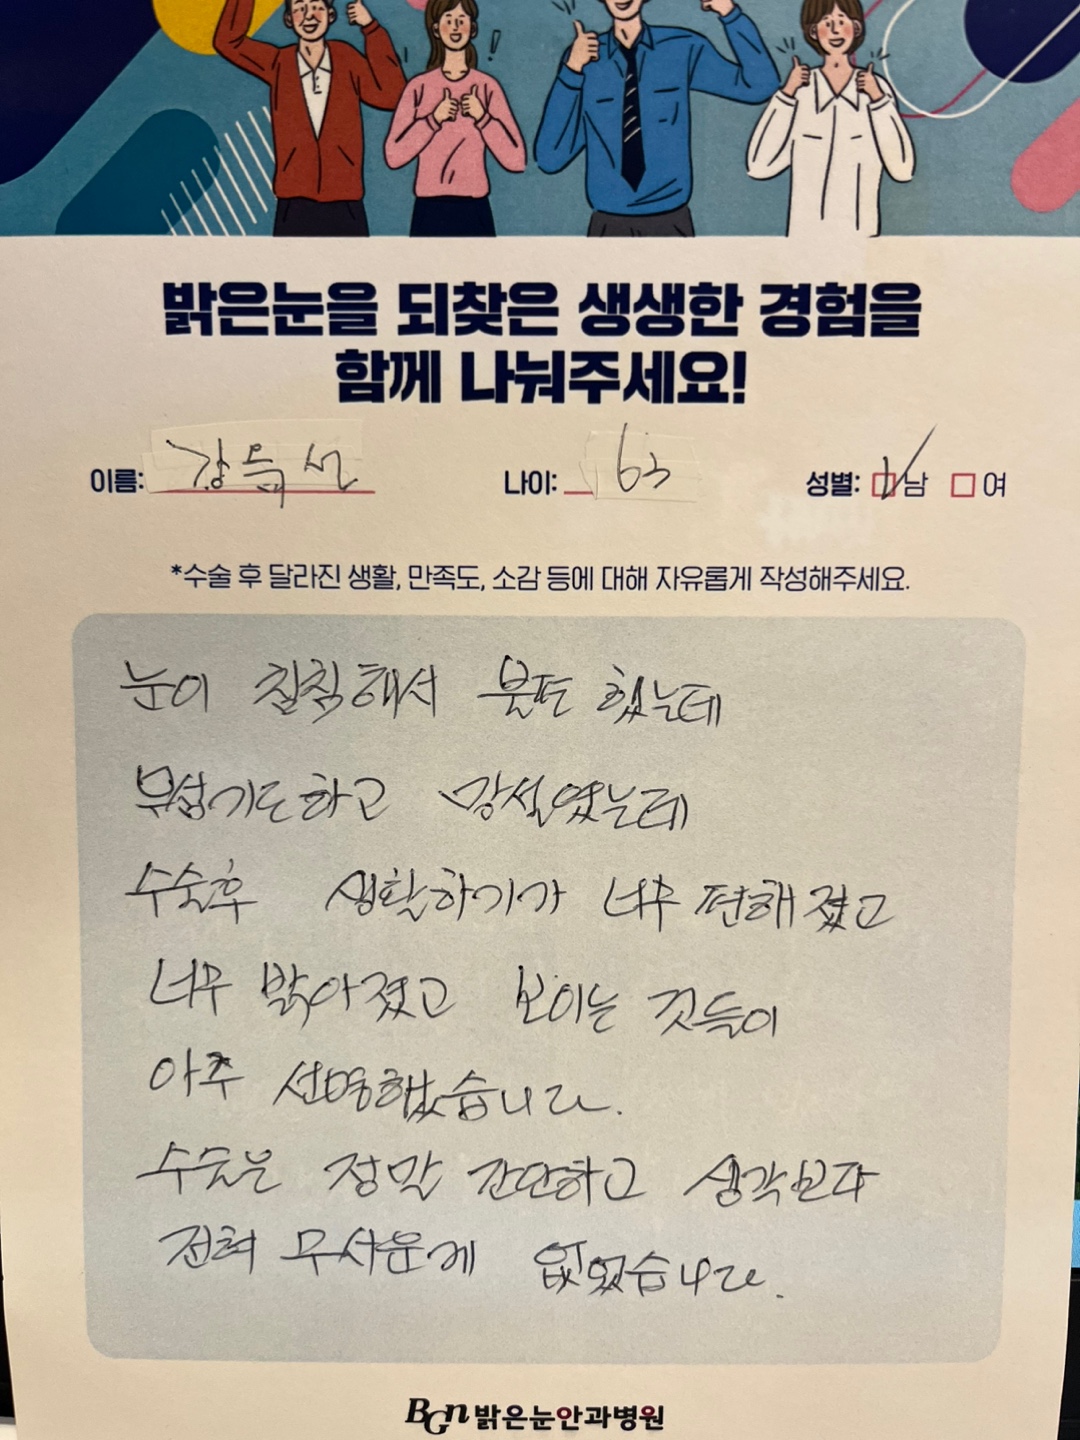 밝은눈을 되찾은 생생한 경험을
함께 나눠주세요!
이름: 강득선 나이: 63 성별: 남 여
*수술 후 달라진 생활, 만족도, 소감 등에 대해 자유롭게 작성해주세요.
눈이 침침해서 불편 했는데
무섭기도하고 망설였는데
수술후 생활하기가 너무 편해졌고
너무 밝아졌고 보이는 것들이
아주 선명했습니다.
수술은 정말 간단하고 생각보다
전혀 무서운게 없었습니다.
BGN 밝은눈안과병원